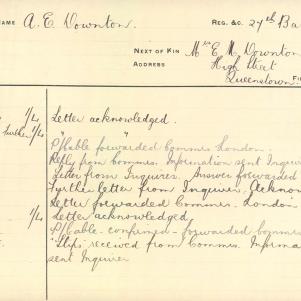 NAME A. E. Downton REG. &C. 27th Ba
NEXT OF KIN Mrs E. M. Downton
ADDRESS High Street
Queenstown
1/4 Letter acknowledged.
Further 1/4 " "
P/Cable forwarded Commrs London.
Reply from Commrs. Information sent Inquirer
Letter from Inquirer. Answer forwarded
Further letter from Inquirer. Acknow
Letter forwarded Commrs. London
1/4 Letter acknowledged.
P/Cable - confirmed - forwarded Commrs
"Slip" received from Commrs. Informa
sent Inquirer